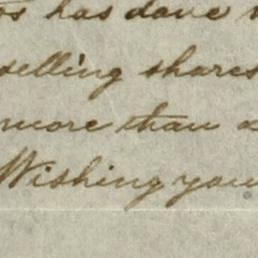 has done
selling shares
more than a
Wishing you